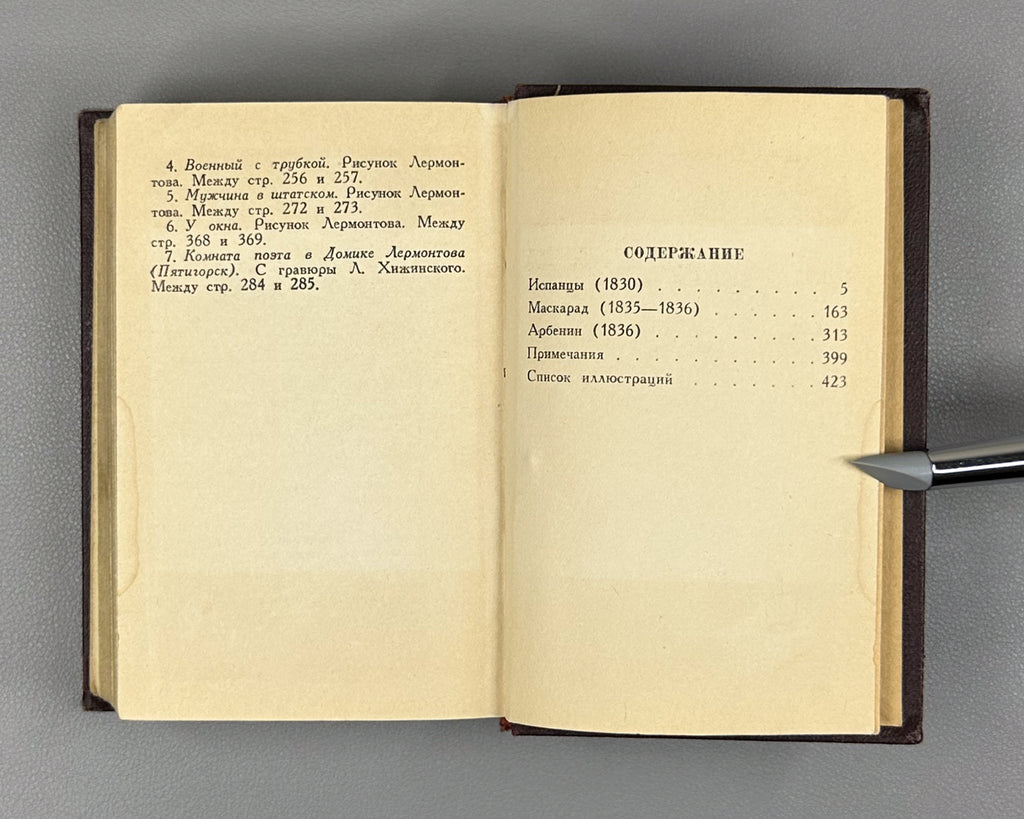 4. Военный с трубкой. Рисунок Лермон-
това. Между стр. 256 и 257.
5. Мужчина в штатском. Рисунок Лермон-
това. Между стр. 272 и 273.
6. У окна. Рисунок Лермонтова. Между
стр. 368 и 369.
7. Комната поэта в Домике Лермонтова
(Пятигорск). С гравюры Л. Хижинского.
Между стр. 284 и 285.
СОДЕРЖАНИЕ
Испанцы (1830) . . . . . . . . . 5
Маскарад (1835—1836) . . . . . . 163
Арбенин (1836) . . . . . . . . . 313
Примечания . . . . . . . . . . . 399
Список иллюстраций . . . . . . . 423